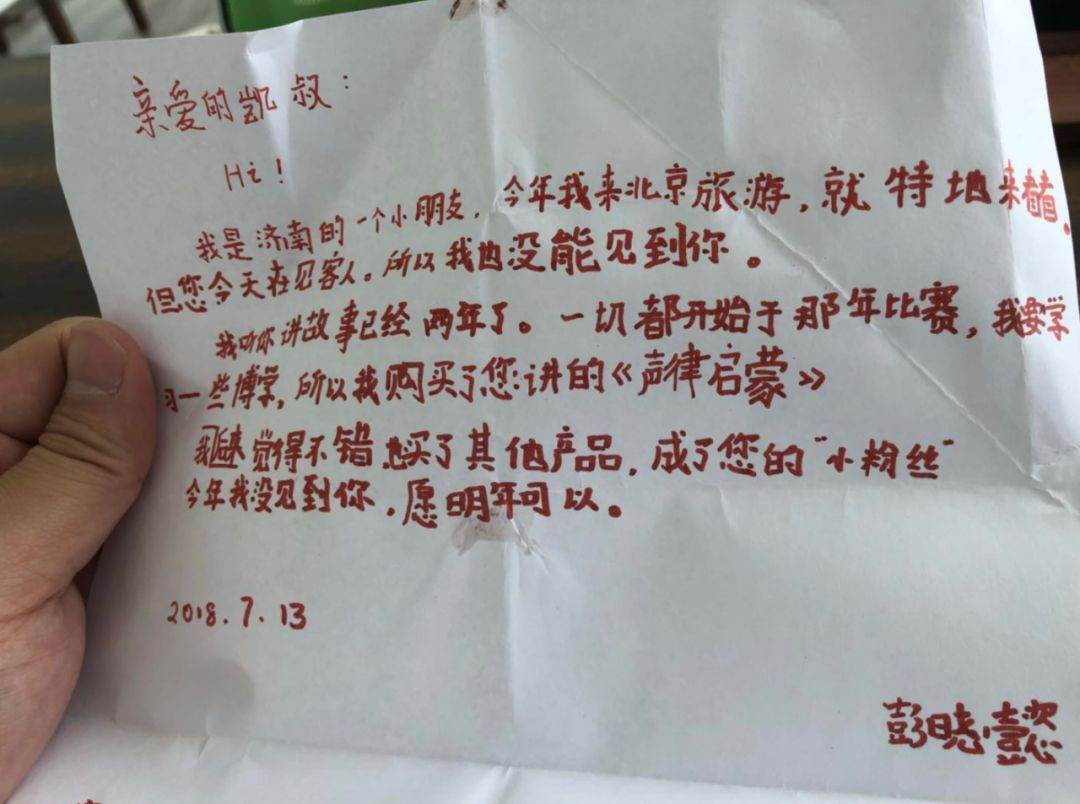 亲爱的凯叔：
Hi！
我是济南的一个小朋友，今年我来北京旅游，就特地来看看，
但您今天在见客人。所以我也没能见到你。
我听你讲故事已经两年了。一切都开始于那年比赛，我要学
习一些博学，所以我购买了您讲的《声律启蒙》
我后来觉得不错，也买了其他产品，成了您的“小粉丝”
今年我没见到你，愿明年可以。
2018.7.13
彭晓懿